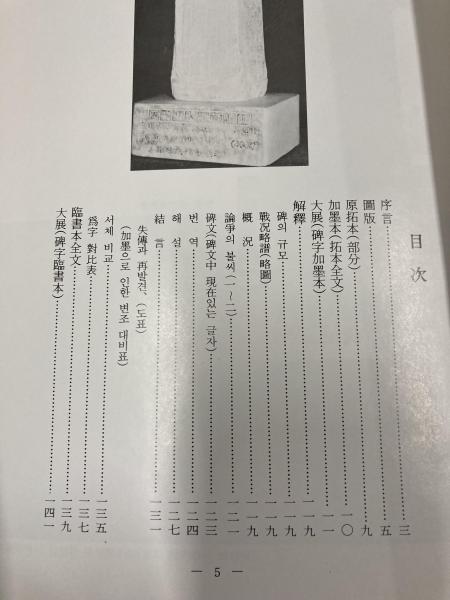 目次
序言……三
圖版……五
原拓本(部分)……九
加墨本(拓本全文)……一〇
大展(碑字加墨本)……一一
解釋……一一九
碑의 규모……一一九
戰況略譜(略圖)……一一九
概況……一一九
論爭의 불씨(一~二)……一二一
碑文(碑文中 現在있는 글자)……一二三
번역……一二四
해설……一二七
結言……一三一
失傳과 再발견、(도표)
(加墨으로 인한 변조 대비표)
서체 비교……一三五
爲字 對比表……一三七
臨書本全文……一三九
大展(碑字臨書本)……一四一
— 5 —